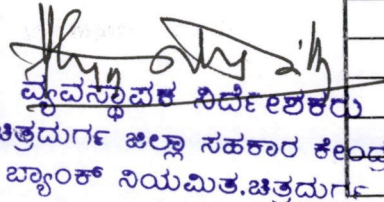 ವ್ಯವಸ್ಥಾಪಕ ನಿರ್ದೇಶಕರು
ಚಿತ್ರದುರ್ಗ ಜಿಲ್ಲಾ ಸಹಕಾರ ಕೇಂದ್ರ
ಬ್ಯಾಂಕ್ ನಿಯಮಿತ.ಚಿತ್ರದುರ್ಗ